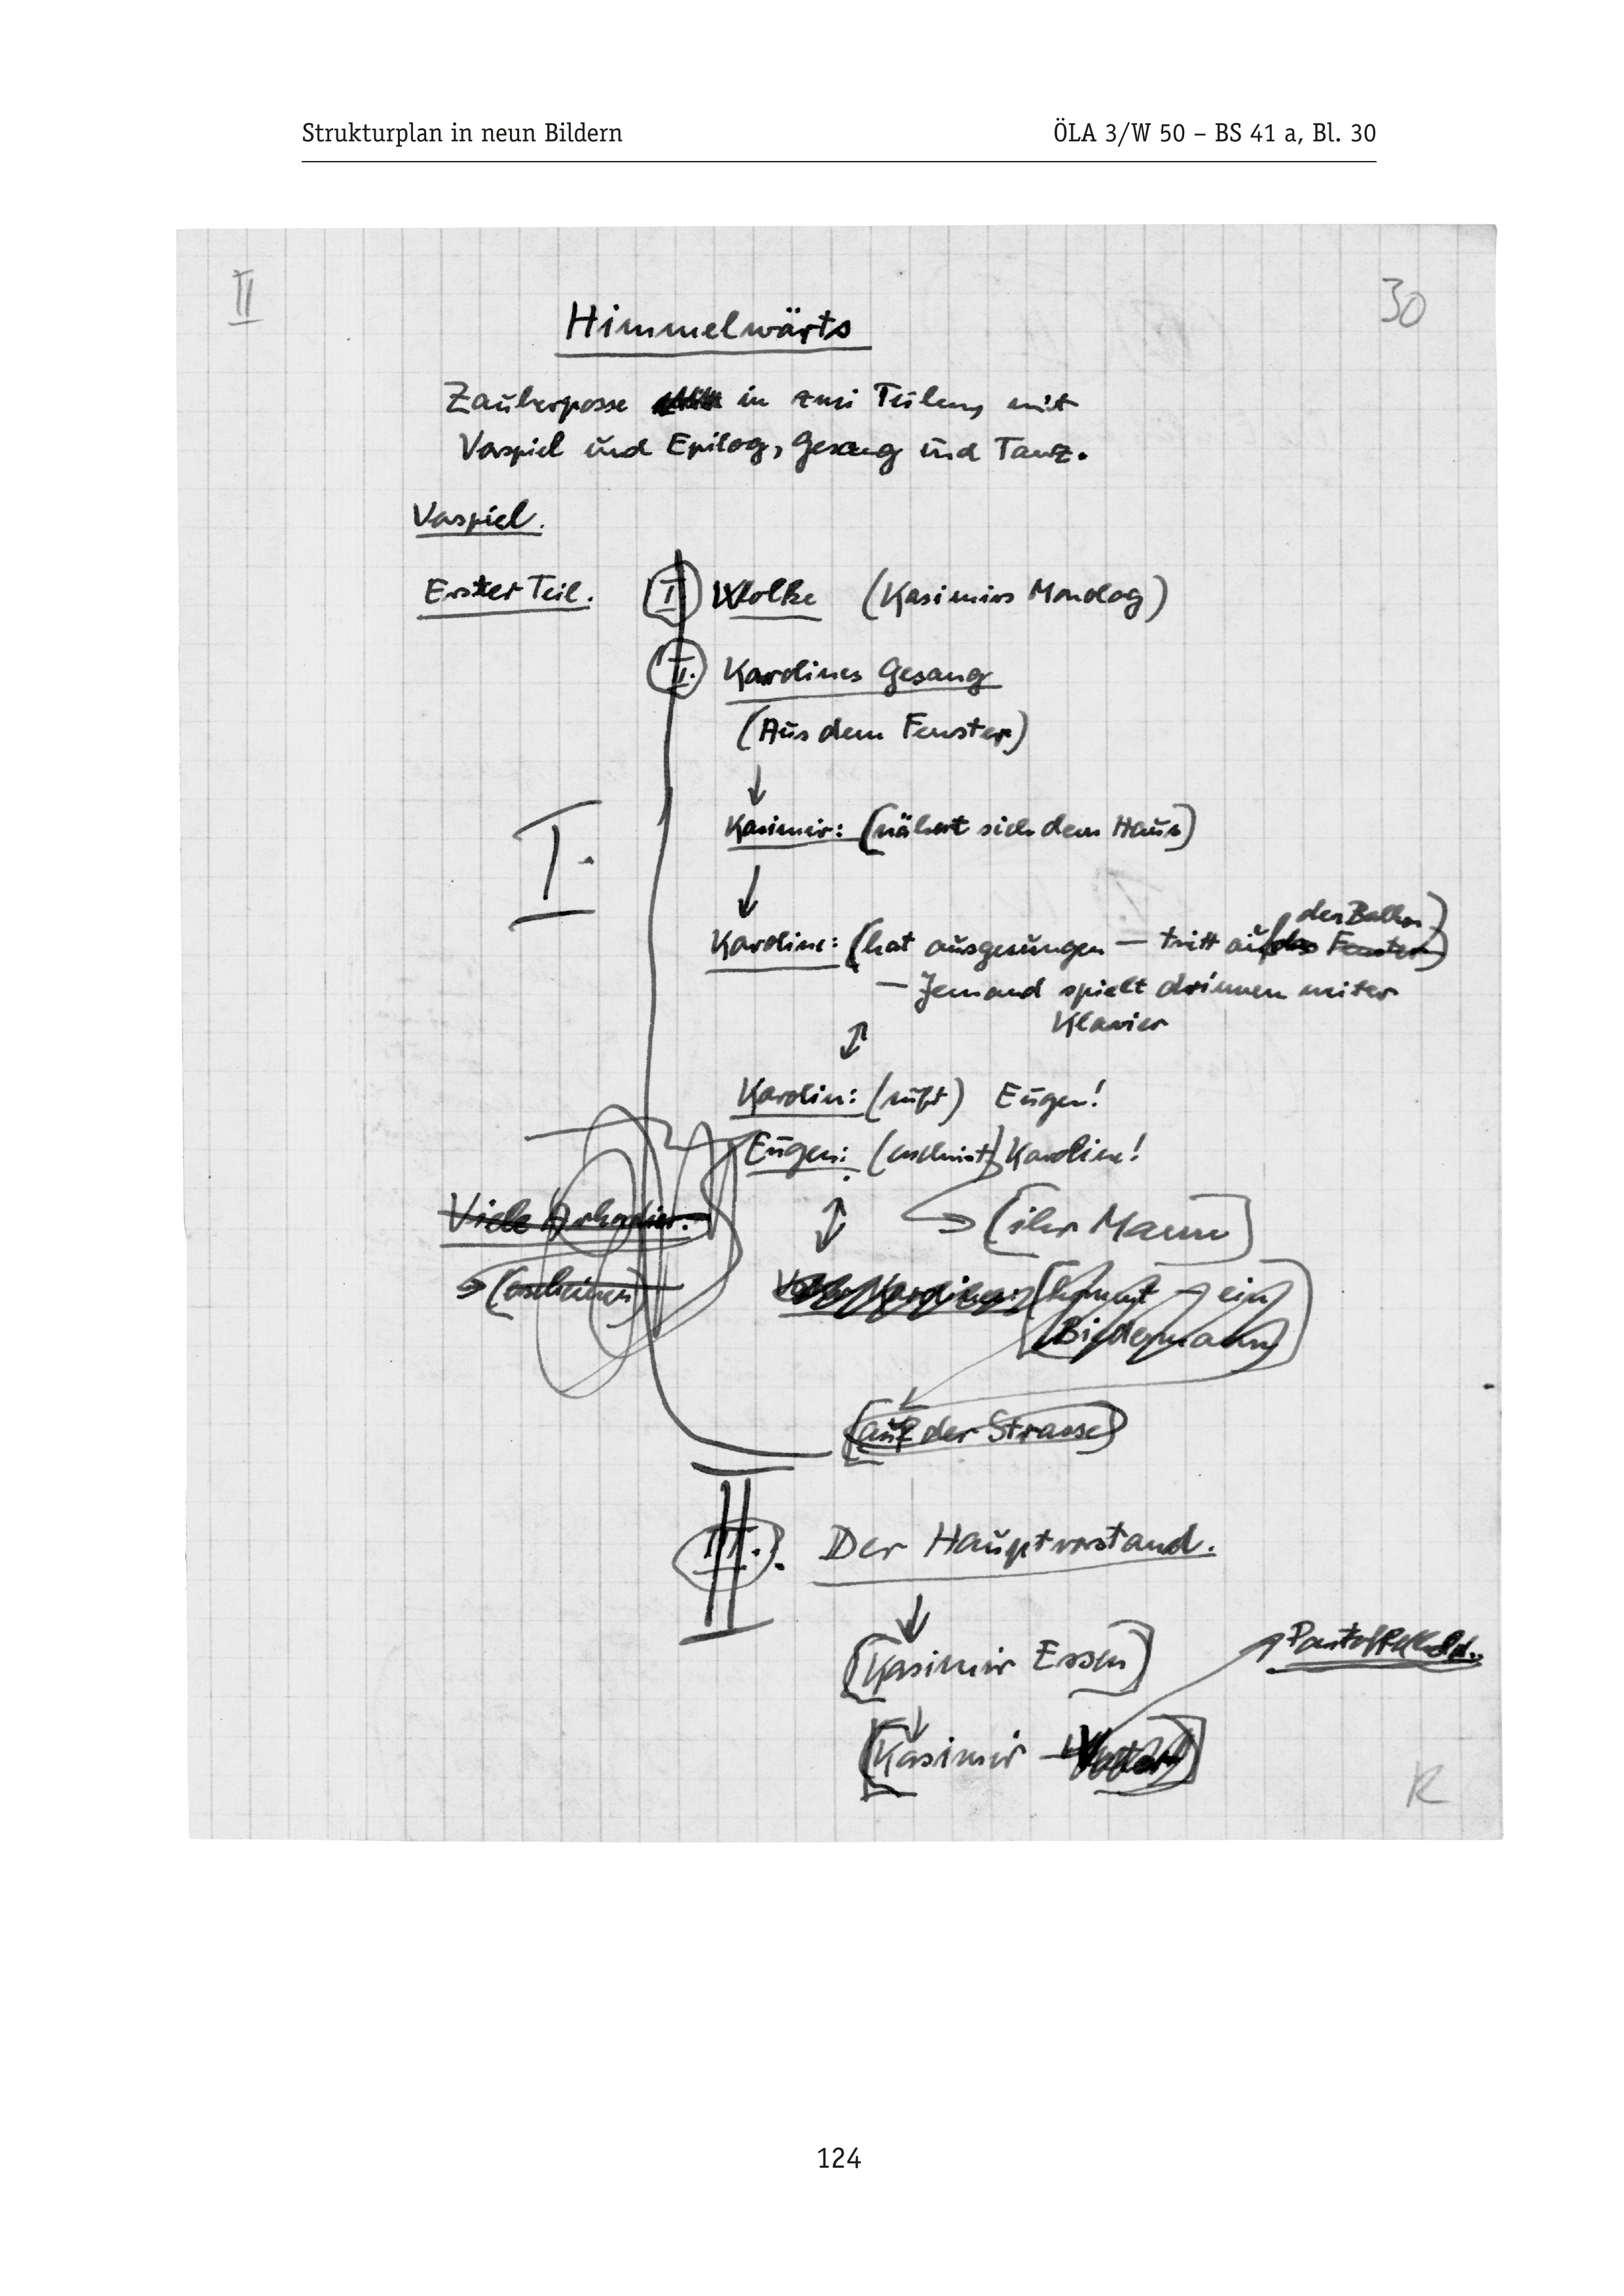 Strukturplan in neun Bildern ÖLA 3/W 50 – BS 41 a, Bl. 30
II 30
Himmelwärts
Zauberposse in zwei Teilen, mit
Vorspiel und Epilog, Gesang und Tanz.
Vorspiel.
Erster Teil. I Wolke (Kasimirs Monolog)
II. Karolines Gesang
(Aus dem Fenster)
↓
I. Kasimir: (nähert sich dem Haus)
↓
den Balkon)
Karoline: (hat ausgesungen — tritt auf das Fenster)
— Jemand spielt drinnen weiter
Klavier
↕
Karolin: (ruft) Eugen!
Eugen: (erscheint) Karoline!
Viele Arkadier. ↕ → (ihr Mann)
→ (erscheinen) Karoline: (kommt – ein
Biedermann)
(auf der Strasse)
II
III. Der Hauptvorstand.
↓
(Kasimir Essen) Pantoffelheld.
↓
(Kasimir – Vater)
R
124